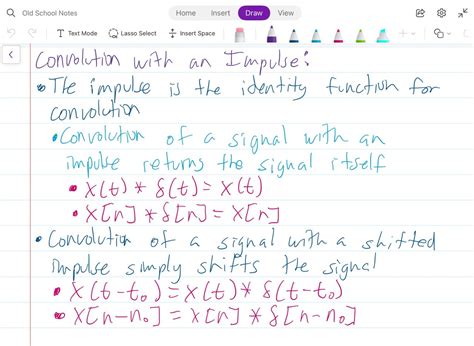 Old School Notes
Home Insert Draw View
Text Mode Lasso Select Insert Space
Convolution with an Impulse:
• The impulse is the identity function for
convolution
• Convolution of a signal with an
impulse returns the signal itself
• x(t) * δ(t) = x(t)
• x[n] * δ[n] = x[n]
• Convolution of a signal with a shifted
impulse simply shifts the signal
• x(t-t₀) = x(t) * δ(t-t₀)
• x[n-n₀] = x[n] * δ[n-n₀]